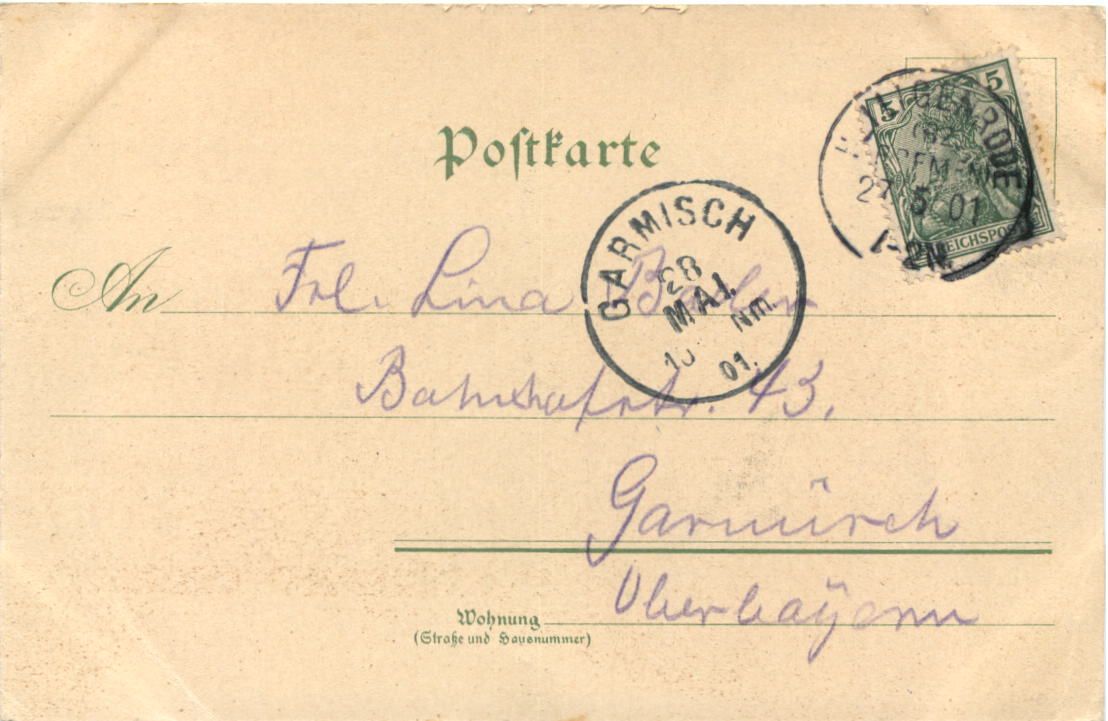 Postkarte
5 5
REICHSPOST
27 5 01
1-2N.
GARMISCH
28
MAI.
Nm.
01.
An Frl. Lina
Bahnhofstr. 43.
Garmisch
Oberbayern
Wohnung
(Straße und Hausnummer)